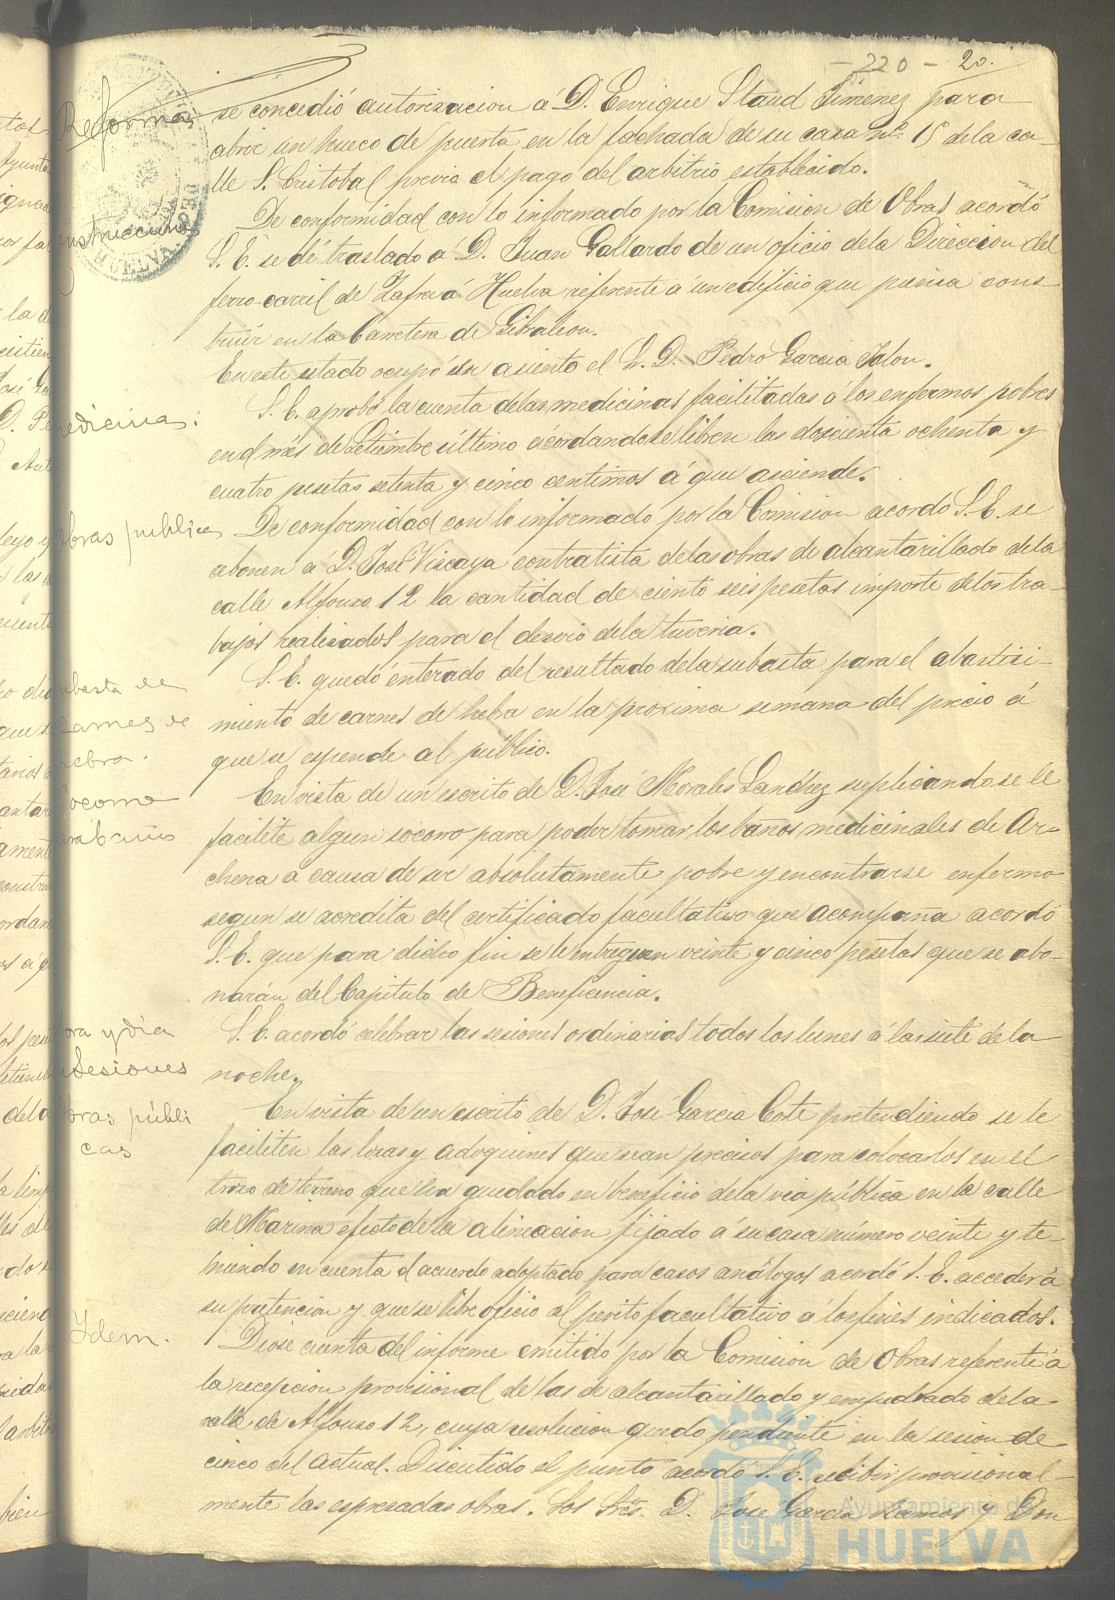 - 220 - 20.
Reformas
se concedió autorizacion á D. Enrique Stand Jimenez para
abrir un hueco de puerta en la fachada de su casa nº 15 de la ca-
lle S. Cristobal previo el pago del arbitrio establecido.
De conformidad con lo informado por la Comision de Obras acordó
onstruccion
S. E. se dé traslado á D. Juan Gallardo de un oficio de la Direccion del
ferro-carril de Zafra á Huelva referente á un edificio que piensa cons-
truir en la Carretera de Gibraleon.
En este estado ocupó su asiento el S. D. Pedro Garcia Jalon.
S. E. aprobó la cuenta de las medicinas facilitadas á los enfermos pobres
edicinas:
en el mes de Setiembre último acordandose libren las doscienta ochenta y
cuatro pesetas setenta y cinco centimos á que asciende.
bras publicas
De conformidad con lo informado por la Comision acordó S. E. se
abonen á D. José Viscaya contratista de las obras de alcantarillado de la
calle Alfonso 12 la cantidad de ciento seis pesetas importe de los tra-
bajos realizados para el desvio de la tuveria.
S. E. quedó enterado del resultado de la subasta para el abasteci-
ubasta de
carnes de
hebra.
miento de carnes de hebra en la proxima semana del precio á
que se espende al público.
En vista de un escrito de D. José Morales Sanchez suplicando se le
ocorro
para baños
facilite algun socorro para poder tomar los baños medicinales de Ar-
chena á causa de ser absolutamente pobre y encontrarse enfermo
segun se acredita del certificado facultativo que acompaña acordó
S. E. que para dicho fin se le entreguen veinte y cinco pesetas que se abo-
narán del Capitulo de Beneficencia.
ora y dia
e Sesiones
S. E. acordó celebrar las sesiones ordinarias todos los lunes á las siete de la
noche.
bras públi
cas
En vista de un escrito de D. Jose Garcia Cote pretendiendo se le
faciliten las losas y adoquines que sean precisos para colocarlos en el
trozo de terreno que ha quedado en beneficio de la via pública en la calle
de Marina efecto de la alineacion fijado á su casa número veinte y te-
niendo en cuenta el acuerdo adoptado para casos análogos acordó S. E. acceder á
su pretencion y que se libre oficio al perito facultativo á los fines indicados.
Ydem.
Diose cuenta del informe emitido por la Comision de Obras referente á
la recepcion provisional de las de alcantarillado y empedrado de la
calle de Alfonso 12, cuya resolucion quedo pendiente en la sesion de
cinco del actual. Discutido el punto acordó S. E. recibir provisional-
mente las espresadas obras. Los Sres. D. Jose Garcia Ramos y Don
Ayuntamiento de
HUELVA